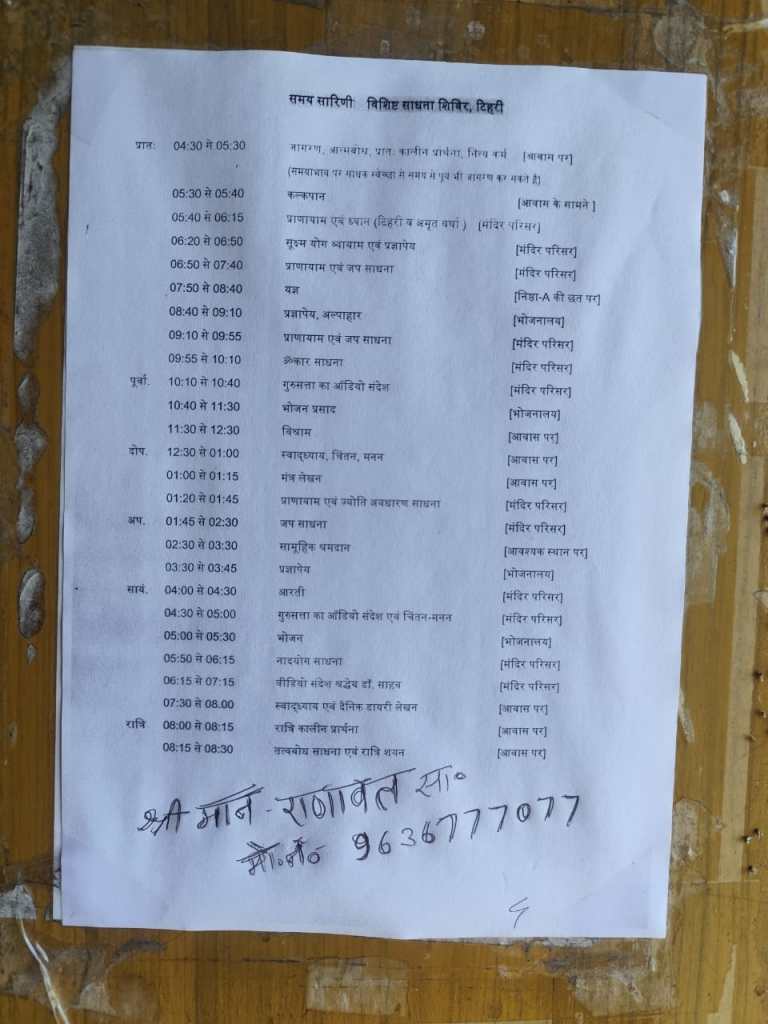 समय सारिणी विशिष्ट साधना शिविर, टिहरी
प्रातः 04:30 से 05:30 जागरण, आत्मबोध, प्रातः कालीन प्रार्थना, नित्य कर्म [आवास पर]
(समयाभाव पर साधक स्वेच्छा से समय से पूर्व भी जागरण कर सकते है)
05:30 से 05:40 कल्कपान [आवास के सामने ]
05:40 से 06:15 प्राणायाम एवं ध्यान (टिहरी व अमृत वर्षा ) [मंदिर परिसर]
06:20 से 06:50 सूक्ष्म योग व्यायाम एवं प्रज्ञापेय [मंदिर परिसर]
06:50 से 07:40 प्राणायाम एवं जप साधना [मंदिर परिसर]
07:50 से 08:40 यज्ञ [निष्ठा-A की छत पर]
08:40 से 09:10 प्रज्ञापेय, अल्पाहार [भोजनालय]
09:10 से 09:55 प्राणायाम एवं जप साधना [मंदिर परिसर]
09:55 से 10:10 ॐकार साधना [मंदिर परिसर]
पूर्वा. 10:10 से 10:40 गुरुसत्ता का ऑडियो संदेश [मंदिर परिसर]
10:40 से 11:30 भोजन प्रसाद [भोजनालय]
11:30 से 12:30 विश्राम [आवास पर]
दोप. 12:30 से 01:00 स्वाद्ध्याय, चिंतन, मनन [आवास पर]
01:00 से 01:15 मंत्र लेखन [आवास पर]
01:20 से 01:45 प्राणायाम एवं ज्योति अवधारण साधना [मंदिर परिसर]
अप. 01:45 से 02:30 जप साधना [मंदिर परिसर]
02:30 से 03:30 सामूहिक श्रमदान [आवश्यक स्थान पर]
03:30 से 03:45 प्रज्ञापेय [भोजनालय]
सायं. 04:00 से 04:30 आरती [मंदिर परिसर]
04:30 से 05:00 गुरुसत्ता का ऑडियो संदेश एवं चिंतन-मनन [मंदिर परिसर]
05:00 से 05:30 भोजन [भोजनालय]
05:50 से 06:15 नादयोग साधना [मंदिर परिसर]
06:15 से 07:15 वीडियो संदेश श्रद्धेय डॉ. साहब [मंदिर परिसर]
07:30 से 08.00 स्वाद्ध्याय एवं दैनिक डायरी लेखन [आवास पर]
रात्रि 08:00 से 08:15 रात्रि कालीन प्रार्थना [आवास पर]
08:15 से 08:30 तत्वबोध साधना एवं रात्रि शयन [आवास पर]
श्री मान - राणावत सा॰
मो.नं॰ 9636777077